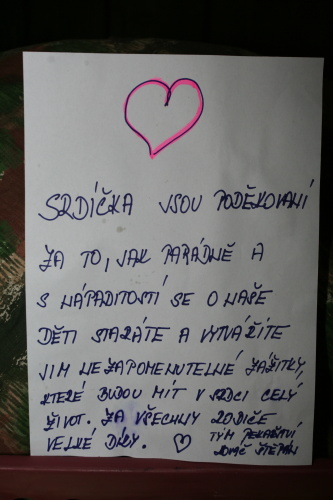 SRDÍČKA JSOU PODĚKOVANÍ
ZA TO, JAK PARÁDNĚ A
S NÁPADITOSTÍ SE O NAŠE
DĚTI STARÁTE A VYTVÁŘÍTE
JIM NEZAPOMENUTELNÉ ZÁŽITKY,
KTERÉ BUDOU MÍT V SRDCI CELÝ
ŽIVOT. ZA VŠECHNY RODIČE
VELKÉ DÍKY. TÝM PEKAŘSTVÍ
KOVÁČ ŠTĚPÁN